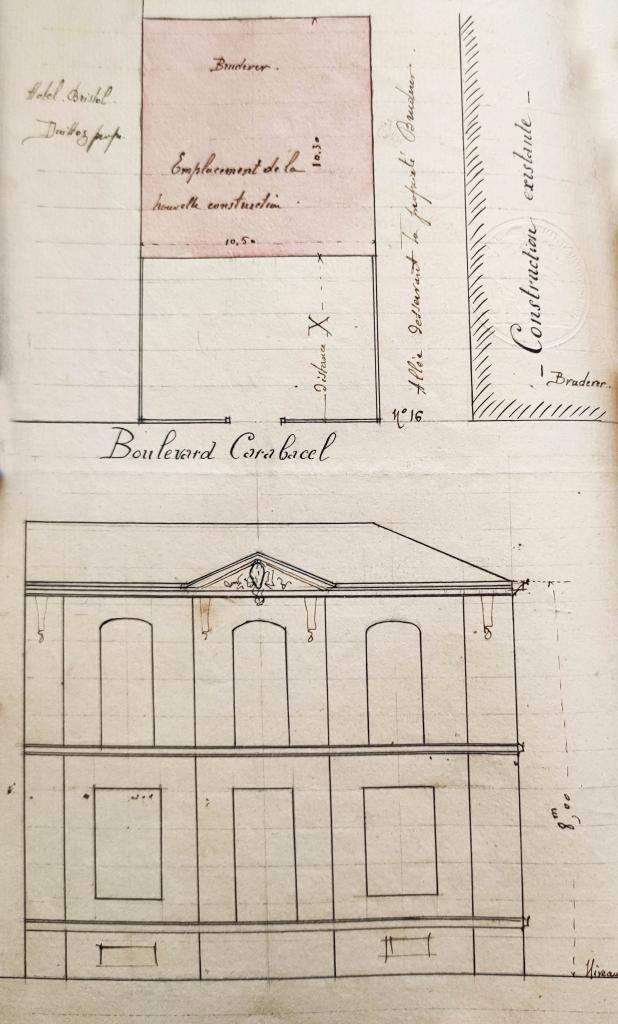 Bruderer.
Hotel Bristol
propr.
10.30
Emplacement de la
nouvelle construction
10.50
distance X
Allée desservant la propriété Bruderer.
Construction existante -
- Bruderer.
N° 16
Boulevard Carabacel
8m,00
Niveau